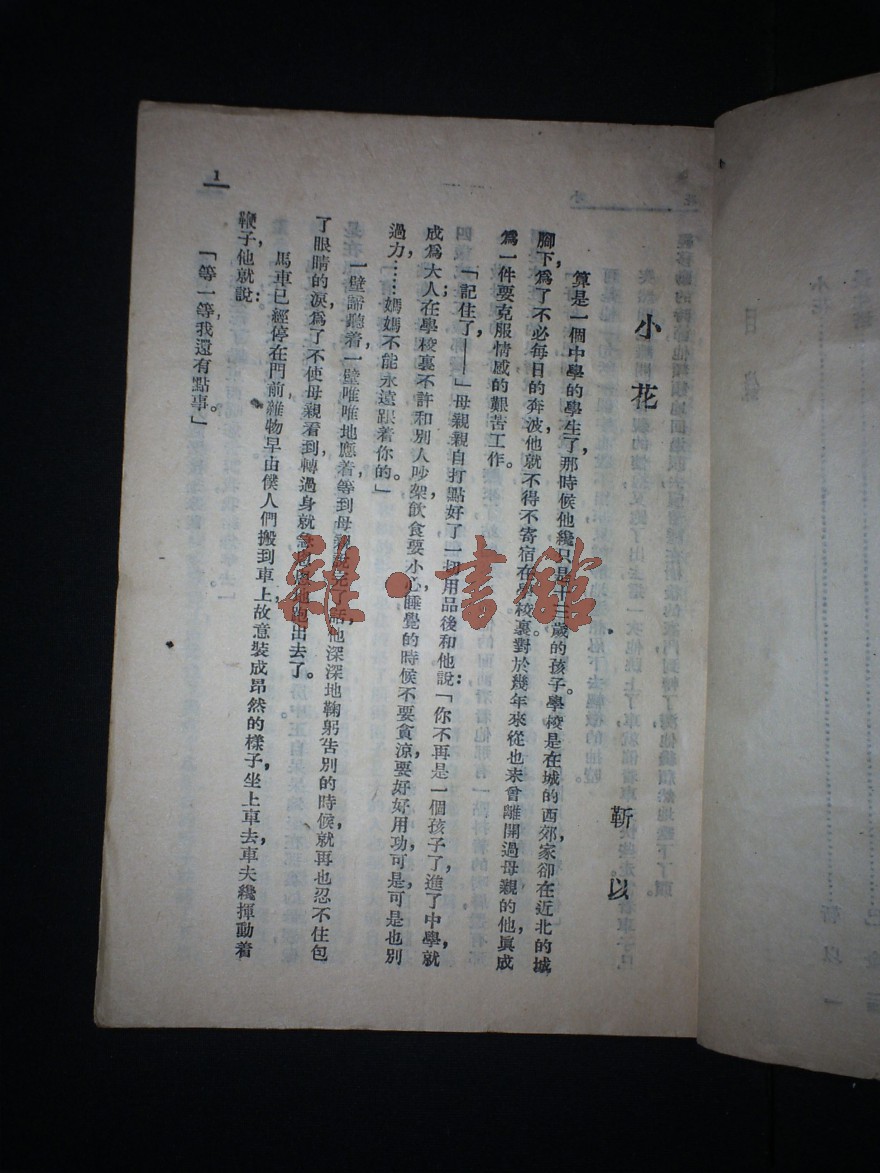 小花
靳以
算是一個中學的學生了，那時候他纔只是十三歲的孩子。學校是在城的西郊，家卻在近北的城
腳下，爲了不必每日的奔波他就不得不寄宿在學校裏。對於幾年來從也未曾離開過母親的他，眞成
爲一件要克服情感的艱苦工作。
「記住了，——」母親親自打點好了一切用品後和他說：「你不再是一個孩子了，進了中學，就
成爲大人；在學校裏不許和別人吵架，飲食要小心，睡覺的時候不要貪涼，要好好用功，可是，可是也別
過力……媽媽不能永遠跟着你的。」
一壁諦聽着，一壁唯唯地應着，等到母親說完了話，他深深地鞠躬告別的時候，就再也忍不住包
了眼睛的淚，爲了不使母親看到，轉過身就急匆匆地跑出去了。
馬車已經停在門前，雜物早由僕人們搬到車上，故意裝成昂然的樣子坐上車去，車夫纔揮動着
鞭子，他就說：
「等一等，我還有點事。」
1
小花
雜·書館